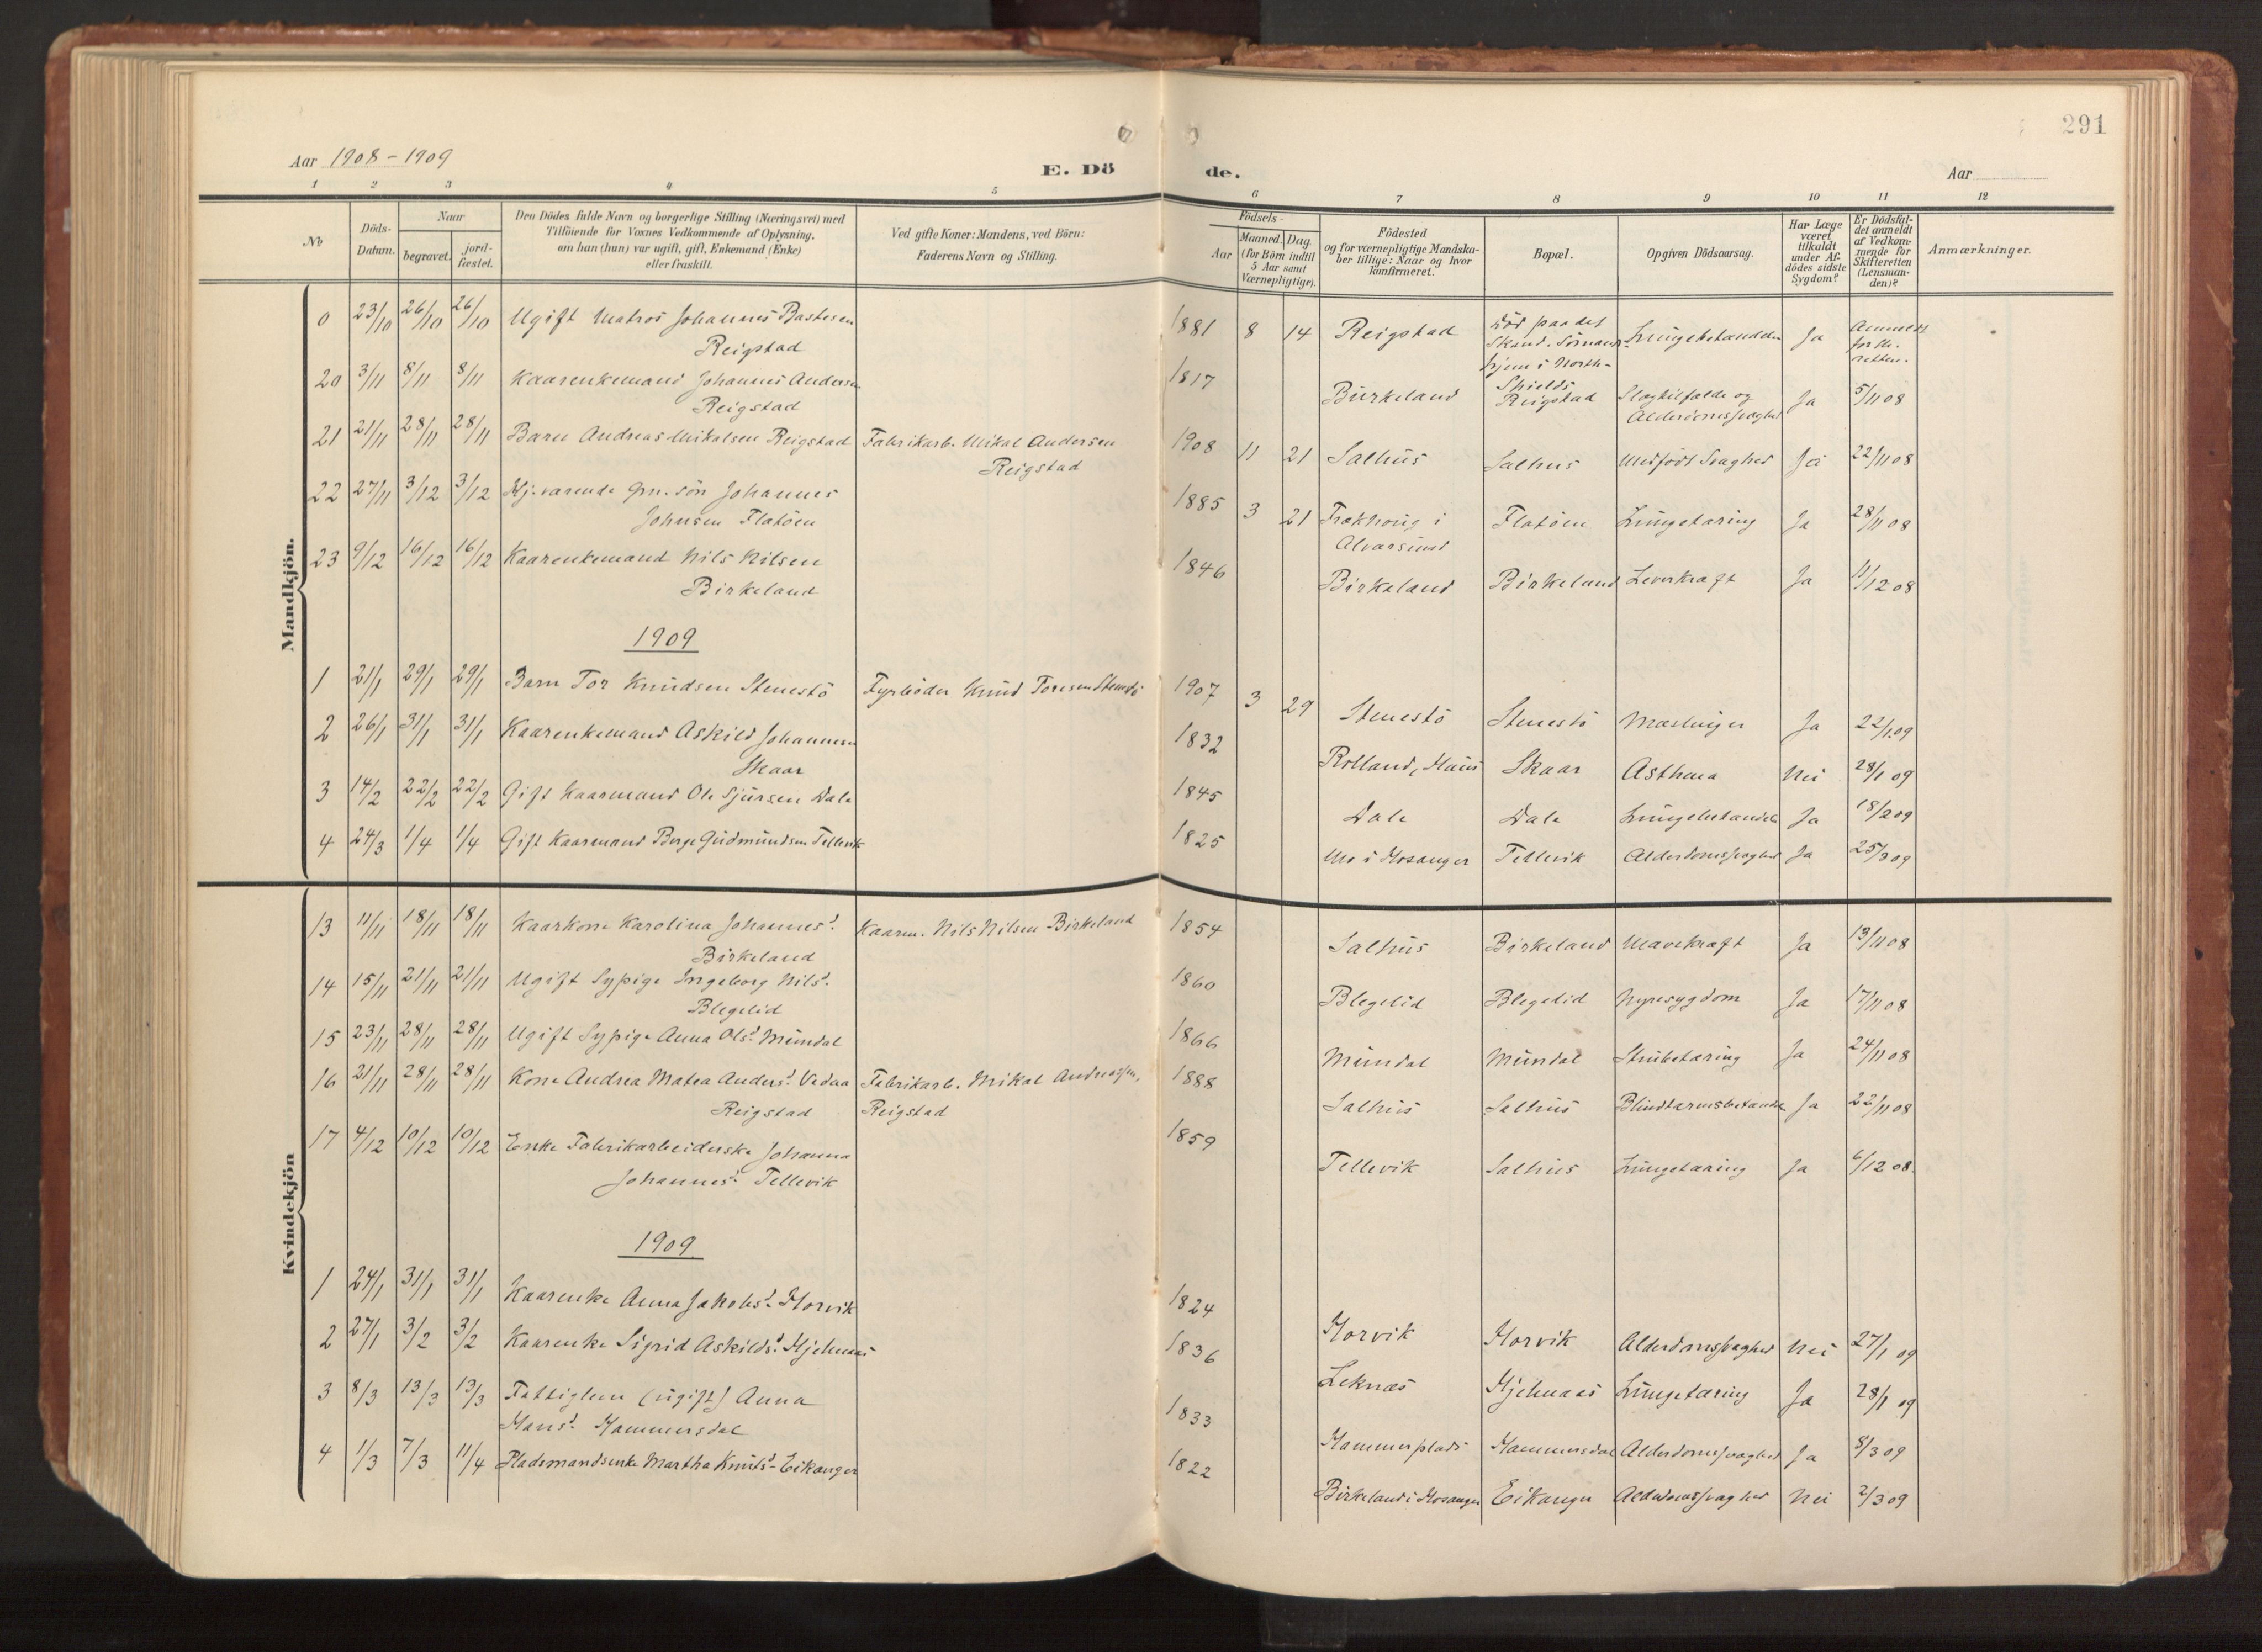 291
Aar 1908 - 1909
E. Dö de.
Aar
1 2 3 4 5 6 7 8 9 10 11 12
No
Döds-Datum.
Naar
begravet.
jord-fæstet.
Den Dödes fulde Navn og borgerlige Stilling (Næringsvei) med
Tilföiende for Voxnes Vedkommende af Oplysning,
om han (hun) var ugift, gift, Enkemand (Enke)
eller fraskilt.
Ved gifte Koner: Mandens, ved Börn:
Faderens Navn og Stilling.
Födsels-
Aar
Maaned. Dag.
(for Börn indtil
5 Aar samt
Værnepligtige).
Födested
og for værnepligtige Mandska-
ber tillige: Naar og hvor
konfirmeret.
Bopæl.
Opgiven Dödsaarsag.
Har Læge
været
tilkaldt
under Af-
dödes sidste
Sygdom?
Er Dödsfal-
det anmeldt
af Vedkom-
mende for
Skifteretten
(Lensman-
den)?
Anmærkninger.
Mandkjön.
0 23/10 26/10 26/10 Ugift Matros Johannes Bastesen 1881 8 14 Reigstad Död paa det Lungebetændelse Ja
Reigstad Skand. Sömands-
hjem i North-
Shields
20 3/11 8/11 8/11 Kaarenkemand Johannes Andersen 1817 Birkeland Reigstad Slagtilfælde og Ja 5/11 08
Reigstad Alderdomssvaghed
21 21/11 28/11 28/11 Barn Andreas Mikalsen Reigstad Fabrikarb. Mikal Andersen 1908 11 21 Salhus Salhus Medfödt Svaghed Ja 22/11 08
Reigstad
22 27/11 3/12 3/12 Hj.varende Gm. sön Johannes 1885 3 21 i Flatöen Lungetæring Ja 28/11 08
Johnsen Flatöen Alversund
23 9/12 16/12 16/12 Kaarenkemand Nils Nilsen 1846 Birkeland Birkeland Leverkræft Ja 11/12 08
Birkeland
1909
1 21/1 29/1 29/1 Barn Tor Knudsen Stenestö Fyrböder Knud Toresen Stenestö 1907 3 29 Stenestö Stenestö Mæslinger Ja 22/1 09
2 26/1 31/1 31/1 Kaarenkemand Askild Johannesen 1832 Rolland, Haus Skaar Asthma Nei 28/1 09
Skaar
3 14/2 22/2 22/2 Gift Kaarmand Ole Sjursen Dale 1845 Dale Dale Lungebetændelse Ja 18/2 09
4 24/3 1/4 1/4 Gift Kaarmand Berge Gudmundsen Tellevik 1825 Mo i Hosanger Tellevik Alderdomssvaghed Ja 25/3 09
Kvindekjön
13 11/11 18/11 18/11 Kaarkone Karolina Johannesd. Kaarm. Nils Nilsen Birkeland 1854 Salhus Birkeland Mavekræft Ja 13/11 08
Birkeland
14 15/11 21/11 21/11 Ugift Sypige Ingeborg Nilsd. 1860 Blegelid Blegelid Nyresygdom Ja 17/11 08
Blegelid
15 23/11 28/11 28/11 Ugift Sypige Anna Olsd. Mundal 1866 Mundal Mundal Strubetæring Ja 24/11 08
16 21/11 28/11 28/11 Kone Andrea Matea Andersd. Vedaa Fabrikarb. Mikal Andreassen, 1888 Salhus Salhus Blindtarmsbetændelse Ja 22/11 08
Reigstad Reigstad
17 4/12 10/12 10/12 Enke Fabrikarbeiderske Johanna 1859 Tellevik Salhus Lungetæring Ja 6/12 08
Johannesd. Tellevik
1909
1 24/1 31/1 31/1 Kaarenke Anna Jakobsd. Horvik 1824 Horvik Horvik Alderdomssvaghed Nei 27/1 09
2 27/1 3/2 3/2 Kaarenke Sigrid Askildsd. Hjelmaas 1836 Leknæs Hjelmaas Lungetæring Ja 28/1 09
3 8/3 13/3 13/3 Fattiglem (ugift) Anna 1833 Hammerplads Hammersdal Alderdomssvaghed Ja 8/3 09
Hansd. Hammersdal
4 1/3 7/3 11/4 Pladsmandsenke Martha Knutsd. Eikanger 1822 Birkeland i Hosanger Eikanger Alderdomssvaghed Nei 2/3 09